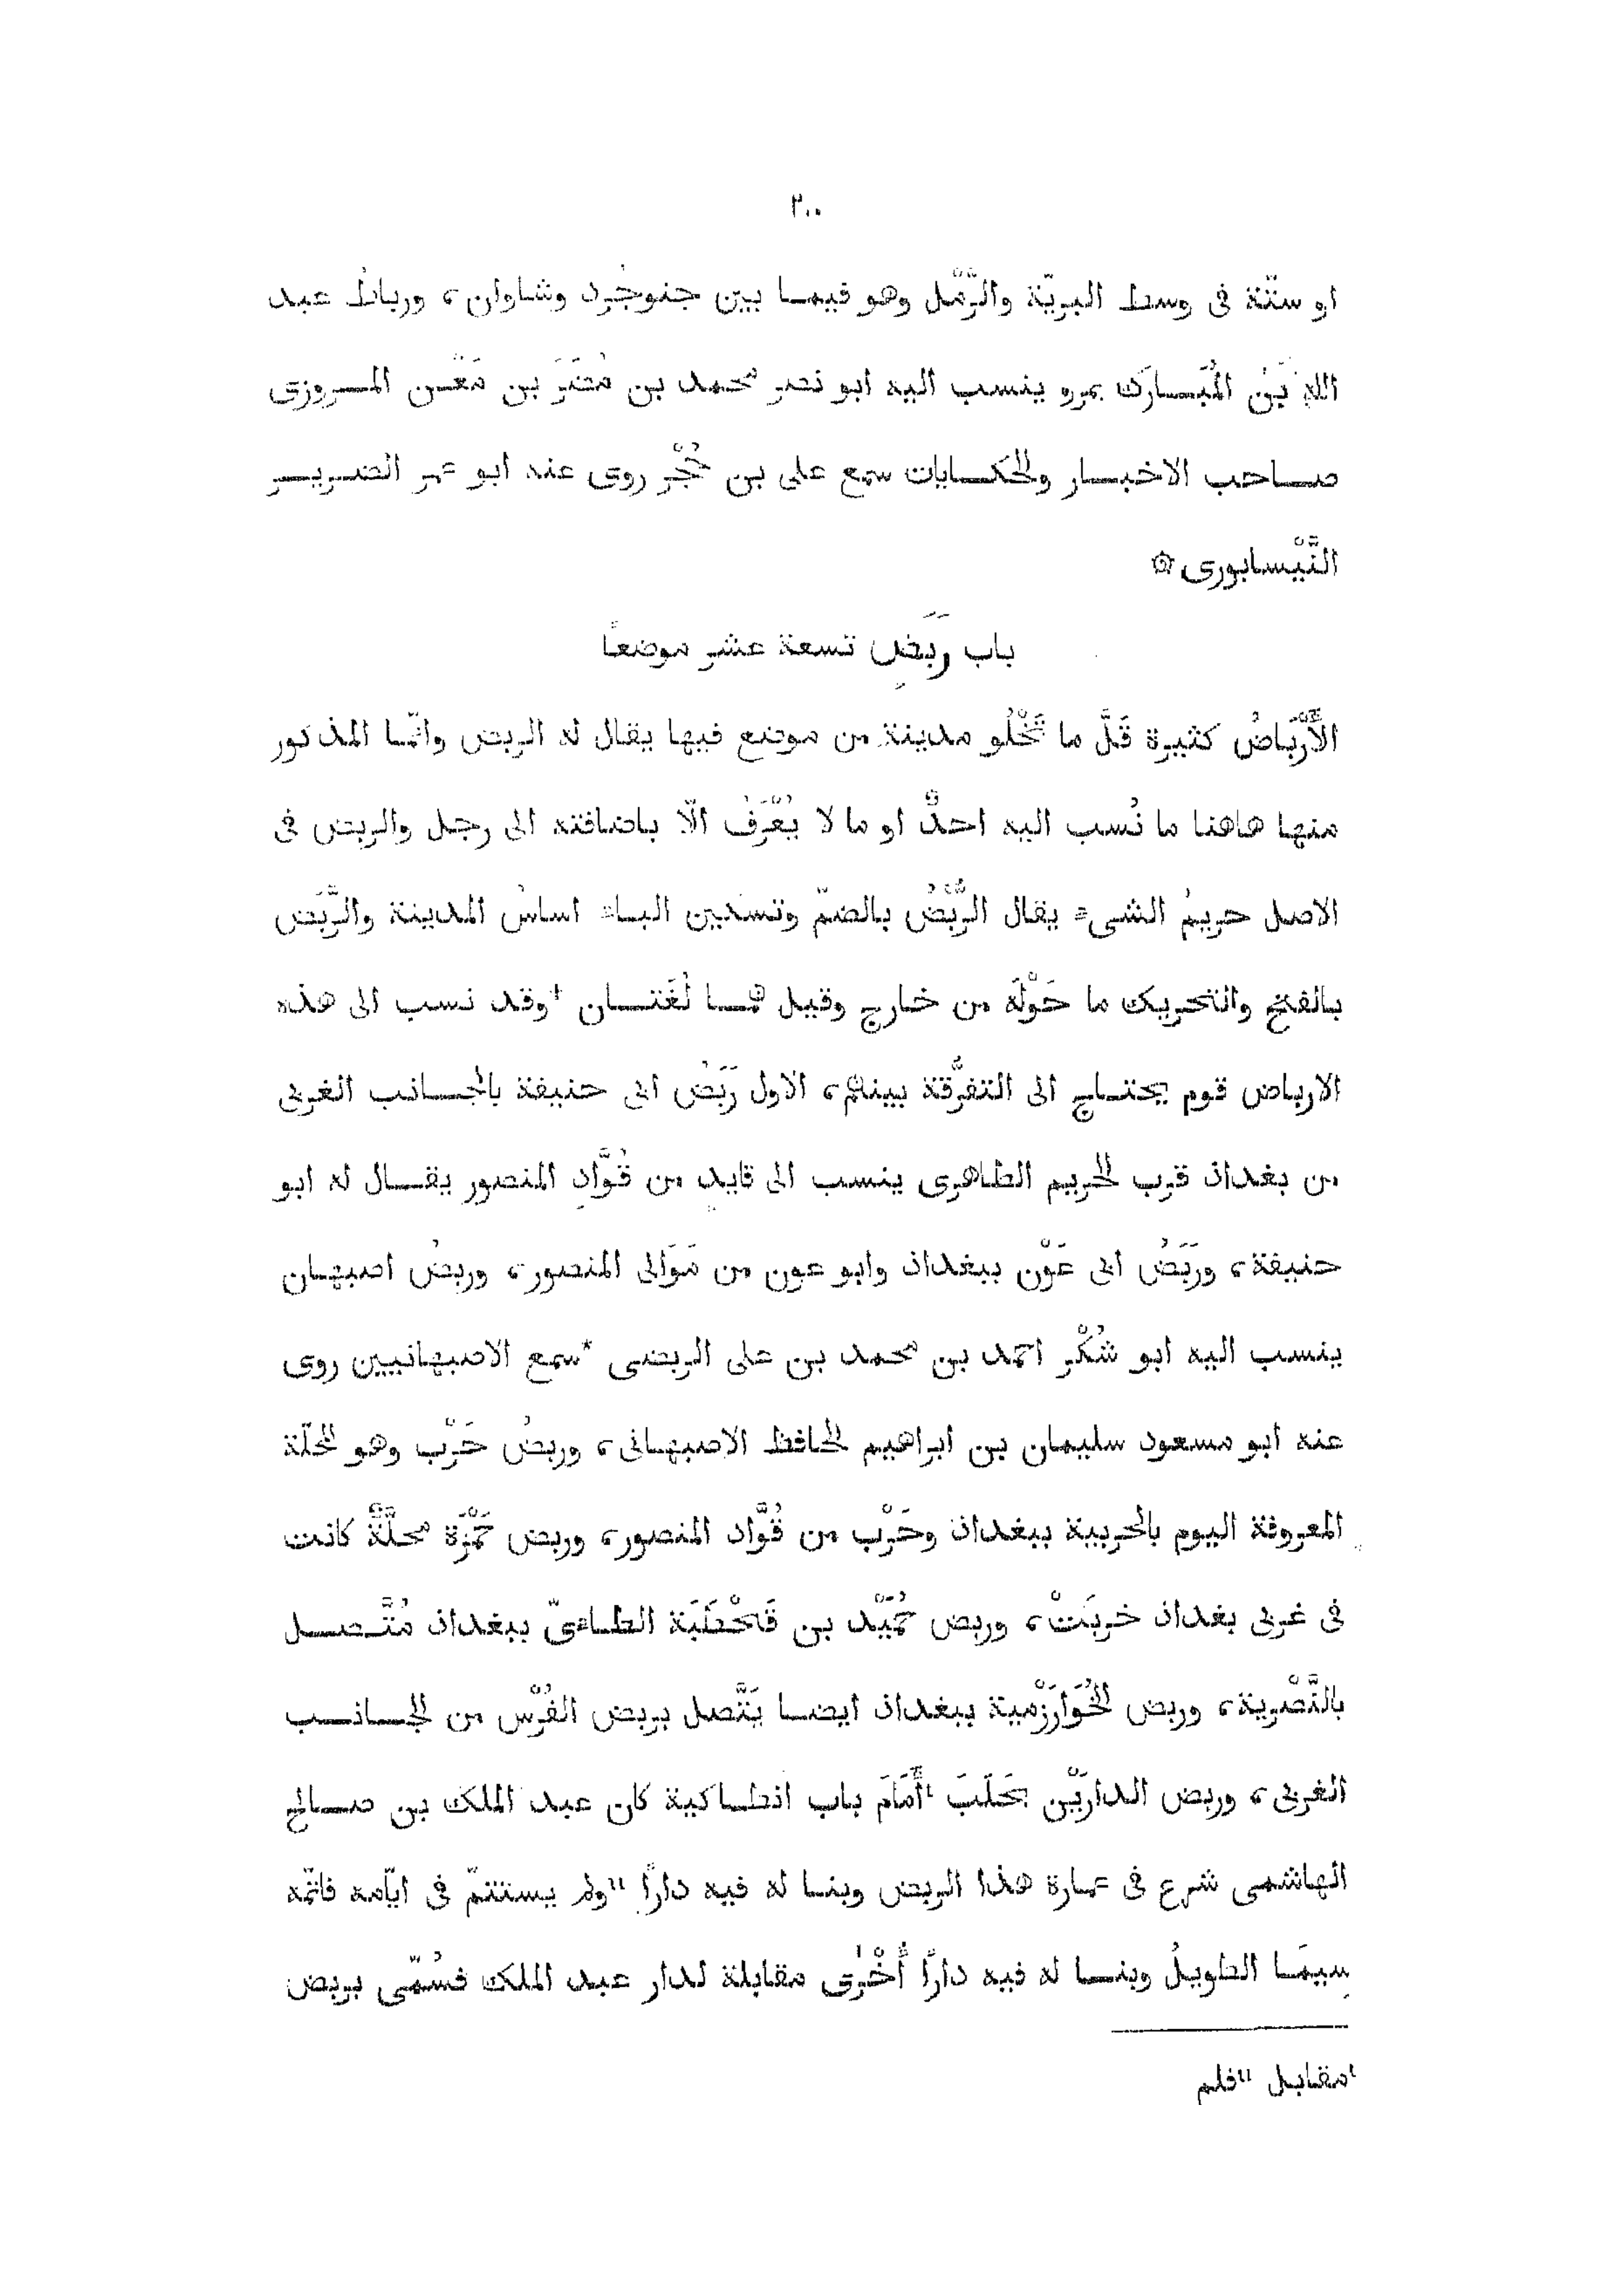 ٢٠٠
او ستّة فى وسط البريّة والرَّمْل وهو فيما بين جنوجرد وشاوان، ورباط عبد
الله بَن المُبَارَك بمرو ينسب اليه ابو نصر محمد بن مُضَر بن مَعْن المروزى
صاحب الاخبار والحكايات سمع على بن حُجْر روى عنه ابو عمر الضرير
النَّيْسابورى ۞
باب رَبَضٍ تسعة عشر موضعًا
الأَرْبَاضُ كثيرة قَلَّ ما تَخْلُو مدينة من موضع فيها يقال له الربض وانّما المذكور
منها هاهنا ما نُسب اليه احدٌ او ما لا يُعْرَفُ الّا باضافته الى رجل والربض فى
الاصل حريمُ الشىء يقال الرُّبْضُ بالضمّ وتسكين الباء اساسُ المدينة والرَّبَض
بالفتح والتحريك ما حَوْلَه من خارج وقيل هما لُغَتان †وقد نسب الى هذه
الارباض قوم يحتاج الى التفرَّقة بينهم، الاول رَبَضُ ابى حنيفة بالجانب الغربى
من بغداد قرب الحريم الطاهرى ينسب الى قايدٍ من قُوَّادِ المنصور يقال له ابو
حنيفة، ورَبَضُ ابى عَوْن ببغداد وابو عون من مَوَالى المنصور، وربضُ اصبهان
ينسب اليه ابو شُكْر احمد بن محمد بن على الربضى *سمع الاصبهانيين روى
عنه ابو مسعود سليمان بن ابراهيم الحافظ الاصبهانى، وربضُ حَرْب وهو المحلّة
المعروفة اليوم بالحربية ببغداد وحَرْب من قُوَّاد المنصور، وربض حَمْزَة محلَّةٌ كانت
فى غربى بغداد خربَتْ، وربض حُمَيْد بن قَحْطَبَة الطاءىّ ببغداد مُتَّصل
بالنَّصْرية، وربض الخُوَارَزْمية ببغداد ايضا يَتَّصل بربض الفُرْس من الجانب
الغربى، وربض الدارَيْن بحَلَبَ ¹أَمَامَ باب انطاكية كان عبد الملك بن صالح
الهاشمى شرع فى عمارة هذا الربض وبنا له فيه دارًا ¹¹ولم يستتمّ فى ايّامه فاتمّه
سيمَا الطويلُ وبنا له فيه دارًا أُخْرَى مقابلة لدار عبد الملك فسُمّى بربض
¹مقابل ¹¹فلم